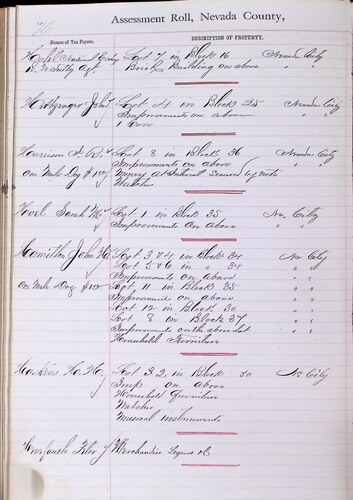 H
Assessment Roll, Nevada County,
Names of Tax Payers.
DESCRIPTION OF PROPERTY.
Lot 7 in Block 16 Nevada City
Agt. Brick Building on above " "
John Lot 4 in Block 25 Nevada City
Improvements on above " "
1
Harrison Lot 8 in Block 36 Nevada City
Improvements on above " "
Money at by note
Watches
Sarah M. Lot 1 in Block 35 Nev City
Improvements on above " "
Hamilton John Lot 3 & 4 in Block 34 Nev City
Lot 5 & 6 in " 34 " "
Improvements on above " "
Lot 11 in Block 35 " "
Improvements on above " "
Lot 12 in Block 30 " "
Lot 8 in Block 37 " "
Improvements on the above Lot " "
Household Furniture
Lot 32 in Block 30 Nev City
Imps on above " "
Household Furniture
Watches
Musical instruments
Merchandise Liquors &c